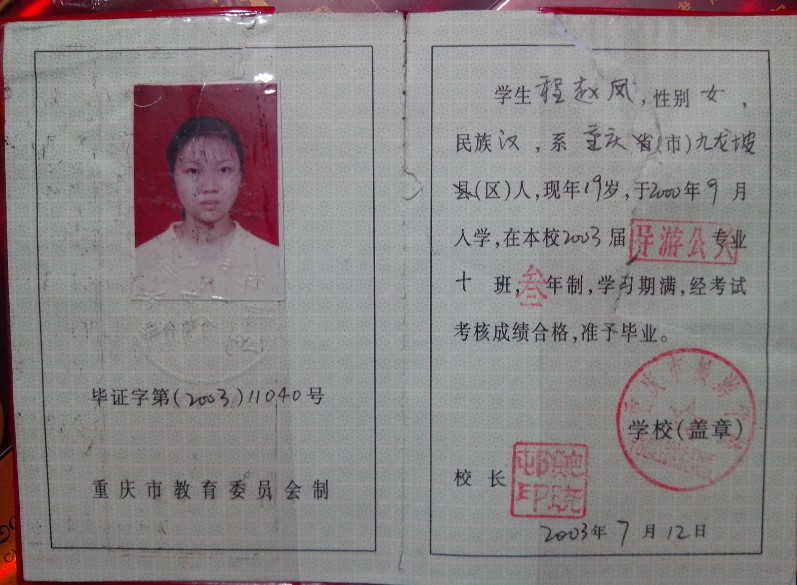 毕证字第(2003)11040号
重庆市教育委员会制
学生程赵凤,性别女,
民族汉,系重庆省(市)九龙坡
县(区)人,现年19岁,于2000年9月
入学,在本校2003届导游公关专业
十班,叁年制,学习期满,经考试
考核成绩合格,准予毕业。
学校(盖章)
校长
2003年7月12日